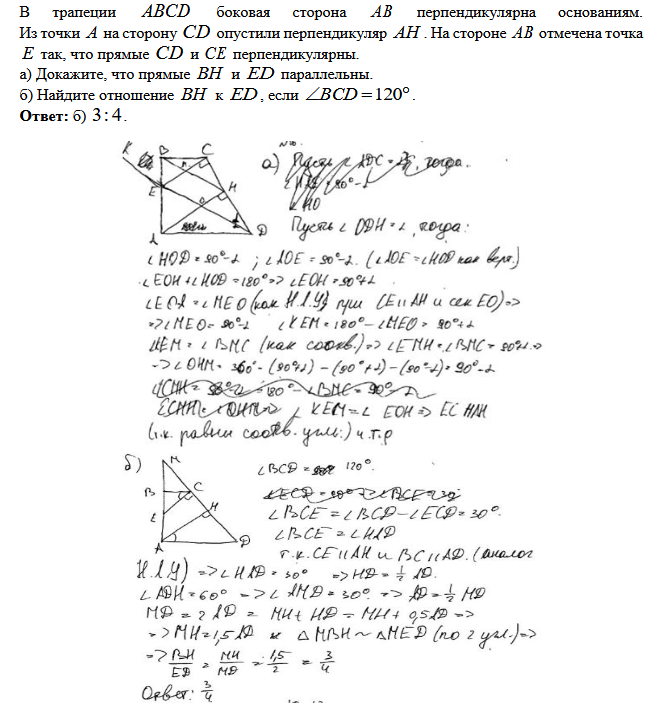 В трапеции ABCD боковая сторона AB перпендикулярна основаниям.
Из точки A на сторону CD опустили перпендикуляр AH. На стороне AB отмечена точка
E так, что прямые CD и CE перпендикулярны.
а) Докажите, что прямые BH и ED параллельны.
б) Найдите отношение BH к ED, если ∠BCD = 120°.
Ответ: б) 3:4.
а)
Пусть ∠ ODH = α, тогда:
∠HOD = 90°-α ; ∠AOE = 90°-α. (∠AOE = ∠HOD как верт.)
∠EOH + ∠HOD = 180° => ∠EOH = 90°+α
= ∠MEO (как Н.Л.У) при CE || AH и сек EO) =>
=> ∠MEO = 90°-α ∠KEM = 180° - ∠MEO = 90°+α
= ∠BMC (как соотв.) => = ∠BMC = 90°+α =>
=> ∠OHM = 360° - (90°+α) - (90°+α) - (90°-α) = 90°-α
∠KEM = ∠ EOH => EC || AH
(т.к. равны соотв. углы) ч.т.д
б) ∠BCD = 120°.
∠BCE = ∠BCD - ∠ECD = 30°.
∠BCE = ∠HAD
т.к. CE || AH и BC || AD. (аналог
Н.Л.У) => ∠HAD = 30° => HD = 1/2 AD.
∠ADH = 60° => ∠AMD = 30° => AD = 1/2 MD
MD = 2AD = MH + HD = MH + 0,5AD =>
=> MH = 1,5AD и △MBH ~ △MED (по 2 угл.) =>
=> BH/ED = MH/MD = 1,5/2 = 3/4
Ответ: 3/4